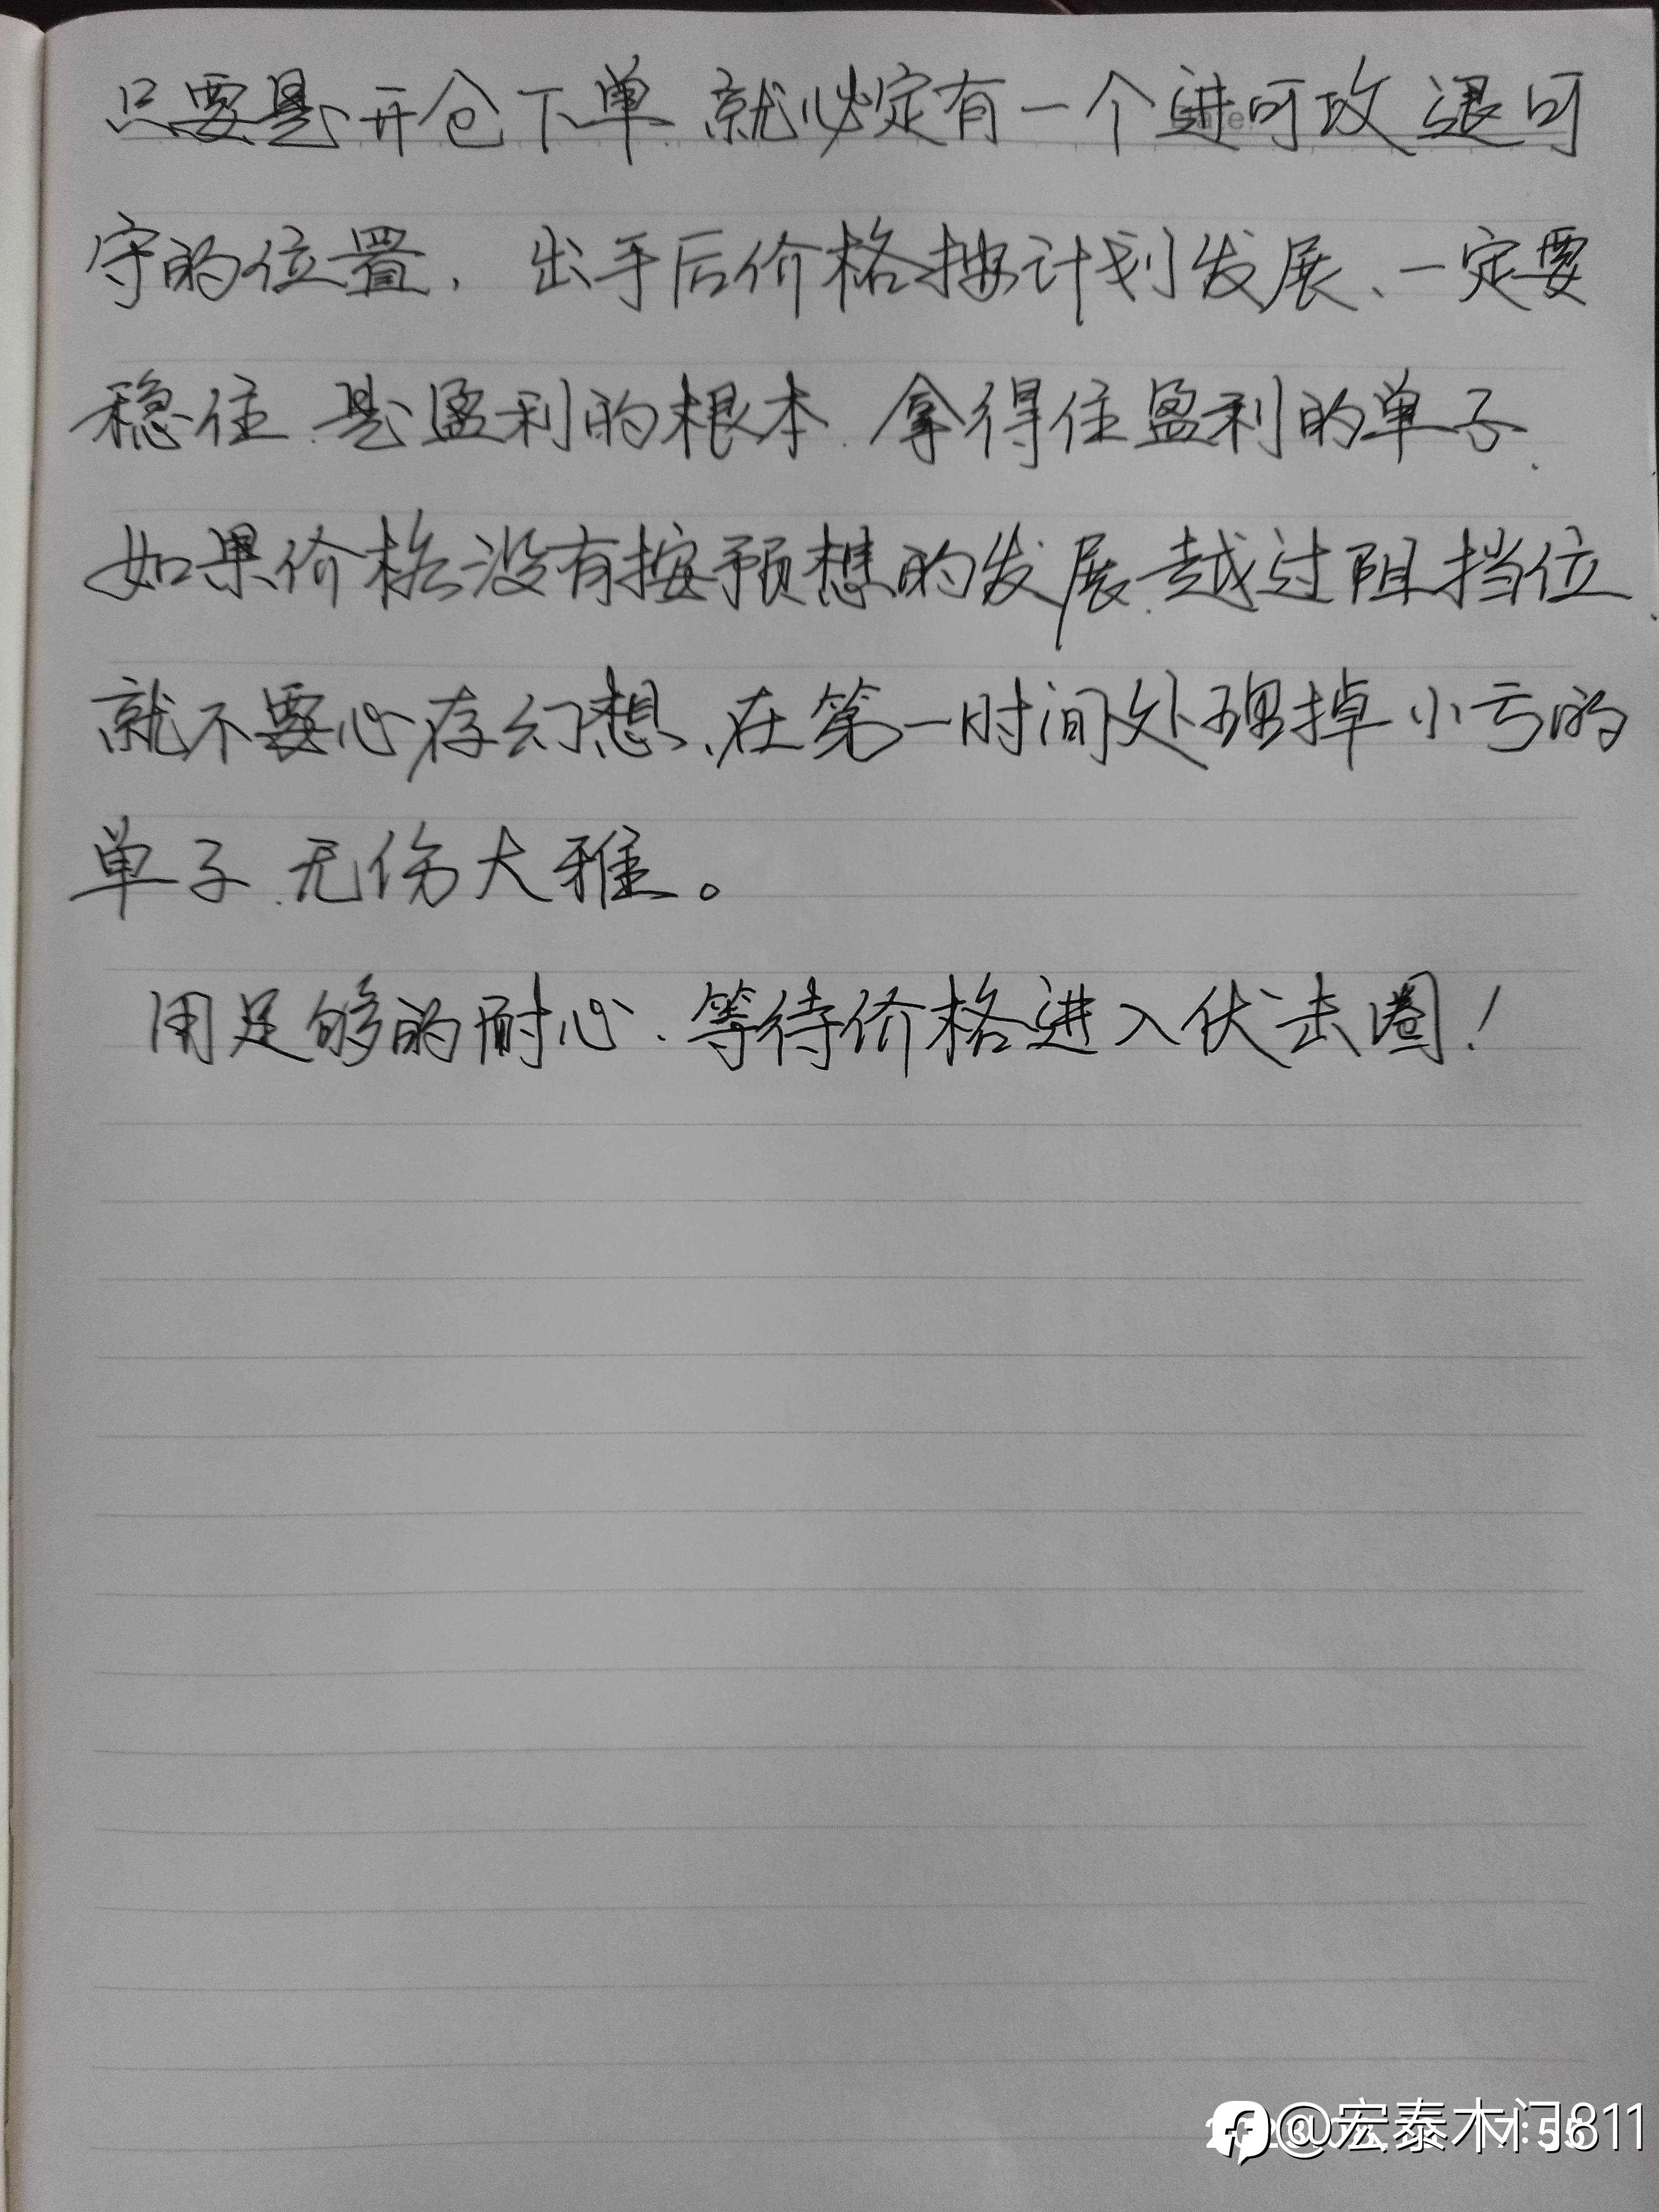 只要是开仓下单、就必定有一个进可攻 退可
守的位置，出手后价格按计划发展、一定要
稳住、是盈利的根本、拿得住盈利的单子、
如果价格没有按预想的发展、越过阻挡位、
就不要心存幻想、在第一时间处理掉小亏的
单子、无伤大雅。
用足够的耐心、等待价格进入伏击圈！
@宏泰木门811